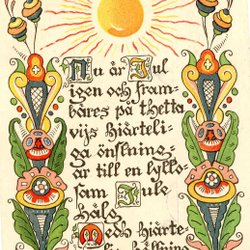 Nu är Jul
igen och fram-
bäres på thetta
vijs hiärteli-
ga önskning-
ar till en lycko-
sam Jule
hälg
Med hiärte-